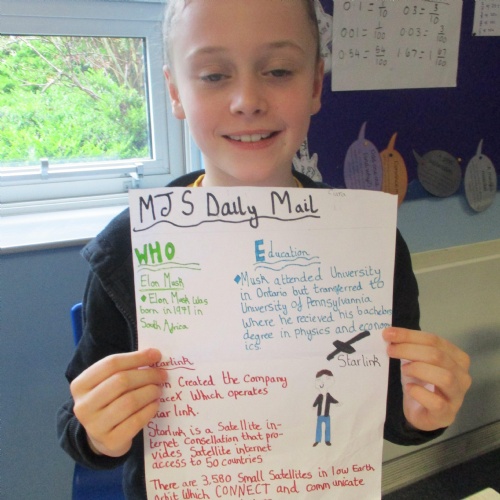 0.1 = 1/10
0.3 = 3/10
0.01 = 1/100
0.03 = 3/100
0.54 = 54/100
1.67 = 1 67/100
MJS Daily Mail
WHO
Elon Musk
Elon Musk was
born in 1971 in
South Africa
Education
Musk attended University
in Ontario but transferred to
University of Pennsylvania
where he recieved his bachelors
degree in physics and econom
ics.
Starlink
Starlink
Created the Company
which operates
Starlink is a Satellite in-
ternet Consellation that pro-
vides Satellite internet
access to 50 countries
There are 3,580 Small Satellites in low Earth
Orbit Which CONNECT and communicate